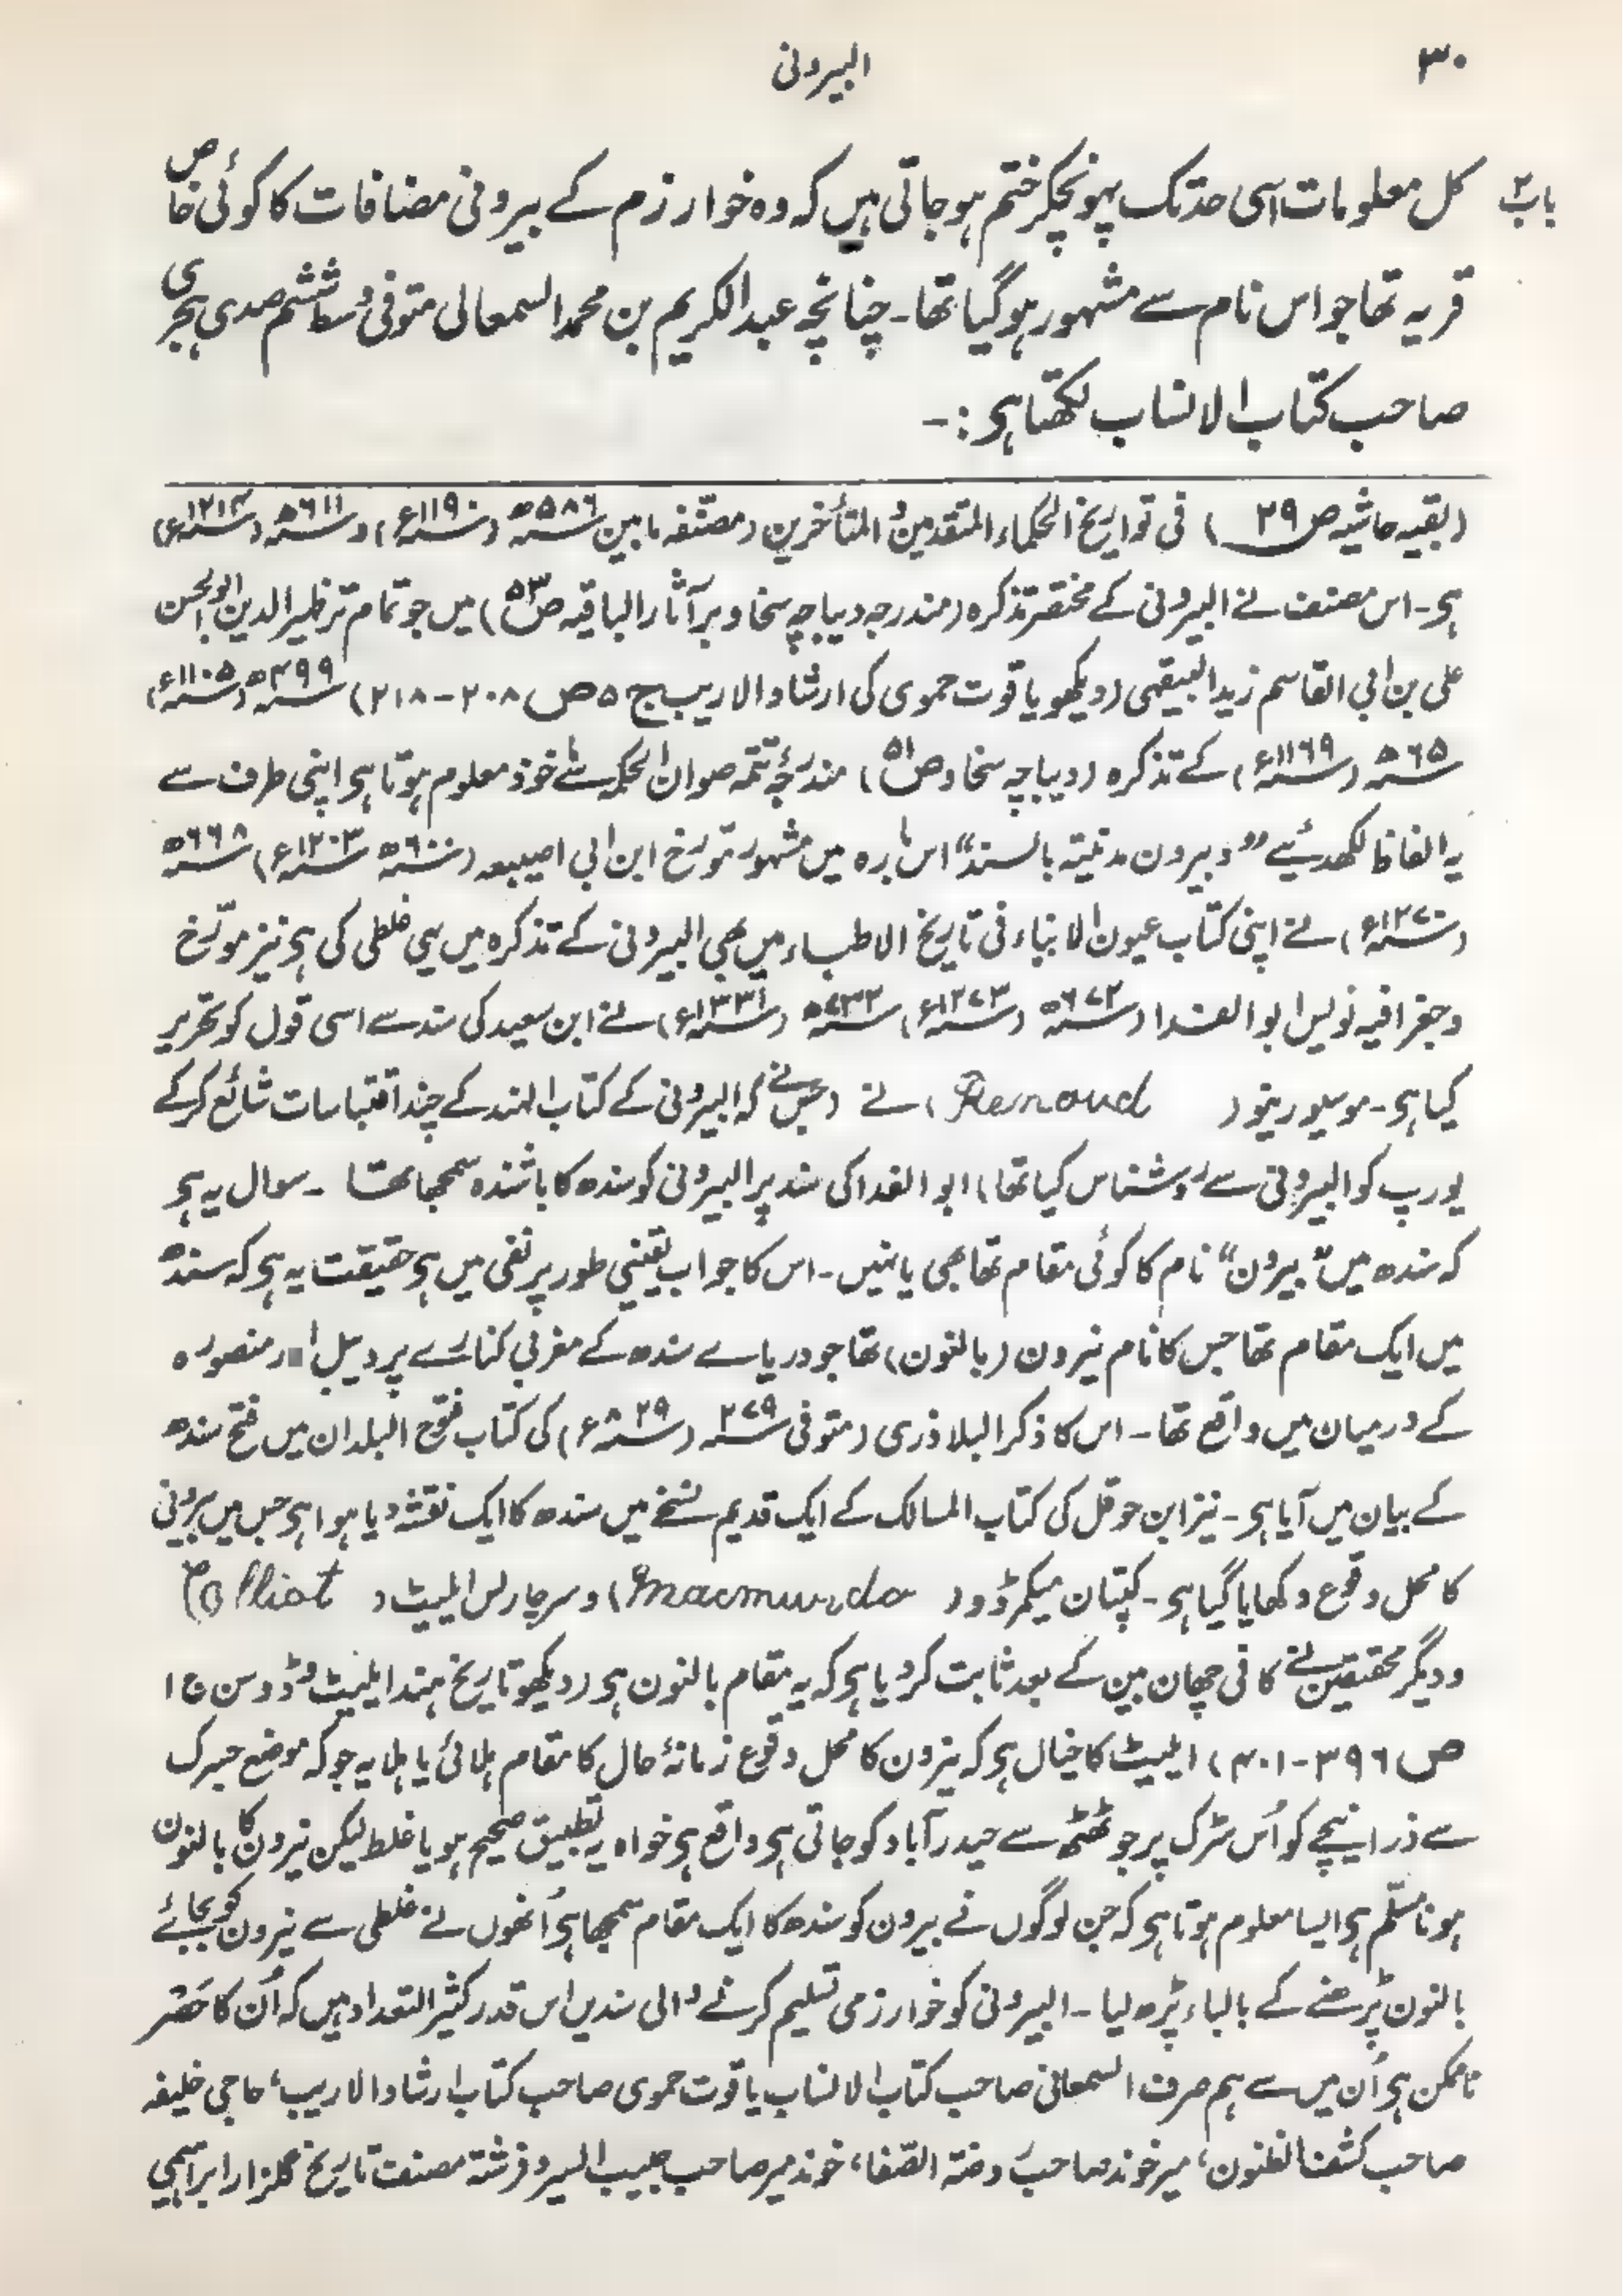 ۳۰
البیرونی
باب ۲
کل معلومات اسی حد تک پہونچکر ختم ہوجاتی ہیں کہ وہ خوارزم کے بیرونی مضافات کا کوئی خاص
قریہ تھا جو اس نام سے مشہور ہوگیا تھا۔ چنانچہ عبدالکریم بن محمد السمعالی متوفی وسط ششم صدی ہجری
صاحب کتاب الانساب لکھتا ہی :۔
(بقیہ حاشیہ ص ۲۹) فی تواریخ الحکماء المتقدمین و المتأخرین (مصنّفہ مابین ۵۸۶ھ (۱۱۹۰ء) و ۶۱۱ھ (۱۲۱۴ء)
ہی۔ اس مصنف نے البیرونی کے مختصر تذکرہ (مندرجہ دیباچہ سخاو برآثار الباقیہ ص ۵۳) میں جو تمام تر ظہیرالدین ابوالحسن
علی بن ابی القاسم زید البیہقی (دیکھو یاقوت حموی کی ارشاد الاریب ج ۵ ص ۲۰۸ - ۲۱۸) ۴۹۹ھ (۱۱۰۵ء)
۵۶۵ھ (۱۱۶۹ء) کے تذکرہ (دیباچہ سخاو ص ۵۱) مندرجۂ تتمہ صوان الحکمہ سے ماخوذ معلوم ہوتا ہی اپنی طرف سے
یہ الفاظ لکھدئیے ”و بیرون مدنیتہ بالسند“ اس بارہ میں مشہور مؤرخ ابن ابی اصیبعہ (۶۰۰ھ ۱۲۰۳ء) ۶۶۸ھ
(۱۲۷۰ء) نے اپنی کتاب عیون الانباء فی تاریخ الاطباء میں بھی البیرونی کے تذکرہ میں یہی غلطی کی ہی نیز مورّخ
وجغرافیہ نویس ابوالفدا (۶۷۲ھ (۱۲۷۳ء) ۷۳۲ھ (۱۳۳۱ء) نے ابن سعید کی سند سے اسی قول کو تحریر
کیا ہی۔ موسیو رینو (Renaud) نے (جس نے کہ البیرونی کے کتاب الہند کے چند اقتباسات شائع کرکے
یورپ کو البیرونی سے روشناس کیا تھا) ابوالفدا کی سند پر البیرونی کو سندھ کا باشندہ سمجھا تھا۔ سوال یہ ہی
کہ سندھ میں ”بیرون“ نام کا کوئی مقام تھا بھی یا نہیں۔ اس کا جواب یقینی طور پر نفی میں ہی حقیقت یہ ہی کہ سندھ
میں ایک مقام تھا جس کا نام نیرون (بالنون) تھا جو دریاے سندھ کے مغربی کنارے پر دیبل اور منصورہ
کے درمیان میں واقع تھا۔ اس کا ذکر البلاذری (متوفی ۲۷۹ (۸۲۹ء) کی کتاب فتوح البلدان میں فتح سندھ
کے بیان میں آیا ہی۔ نیز ابن حوقل کی کتاب المسالک کے ایک قدیم نسخے میں سندھ کا ایک نقشہ دیا ہوا ہی جس میں برونی
کا محل وقوع دکھایا گیا ہی۔ کپتان میکمرڈو (Macmurdo) و سر چارلس ایلیٹ (Elliot)
و دیگر محققین نے کافی چھان بین کے بعد ثابت کر دیا ہی کہ یہ مقام بالنون ہی (دیکھو تاریخ ہند ایلیٹ و ڈوسن ج ۱
ص ۳۹۶-۴۰۱) ایلیٹ کا خیال ہی کہ نیرون کا محل وقوع زمانۂ حال کا مقام ہلائی یا ہلایہ جو کہ موضع جرک
سے ذرا نیچے کو اُس سڑک پر جو ٹھٹھ سے حیدرآباد کو جاتی ہی واقع ہی خواہ یہ تطبیق صحیح ہو یا غلط لیکن نیرون کا بالنون
ہونا مسلّم ہی ایسا معلوم ہوتا ہی کہ جن لوگوں نے بیرون کو سندھ کا ایک مقام سمجھا ہی اُنھوں نے غلطی سے نیرون کو بجائے
بالنون پڑھنے کے بالباء پڑھ لیا۔ البیرونی کو خوارزمی تسلیم کرنے والی سندیں اس قدر کثیر التعداد ہیں کہ اُن کا حَصْر
ناممکن ہی اُن میں سے ہم صرف السمعانی صاحب کتاب الانساب یاقوت حموی صاحب کتاب ارشاد الاریب، حاجی خلیفہ
صاحب کشف الظنون، میرخوند صاحب روضۃ الصّفا، خوندمیر صاحب حبیب السیر و فرشتہ مصنف تاریخ گلزار ابراہیمی